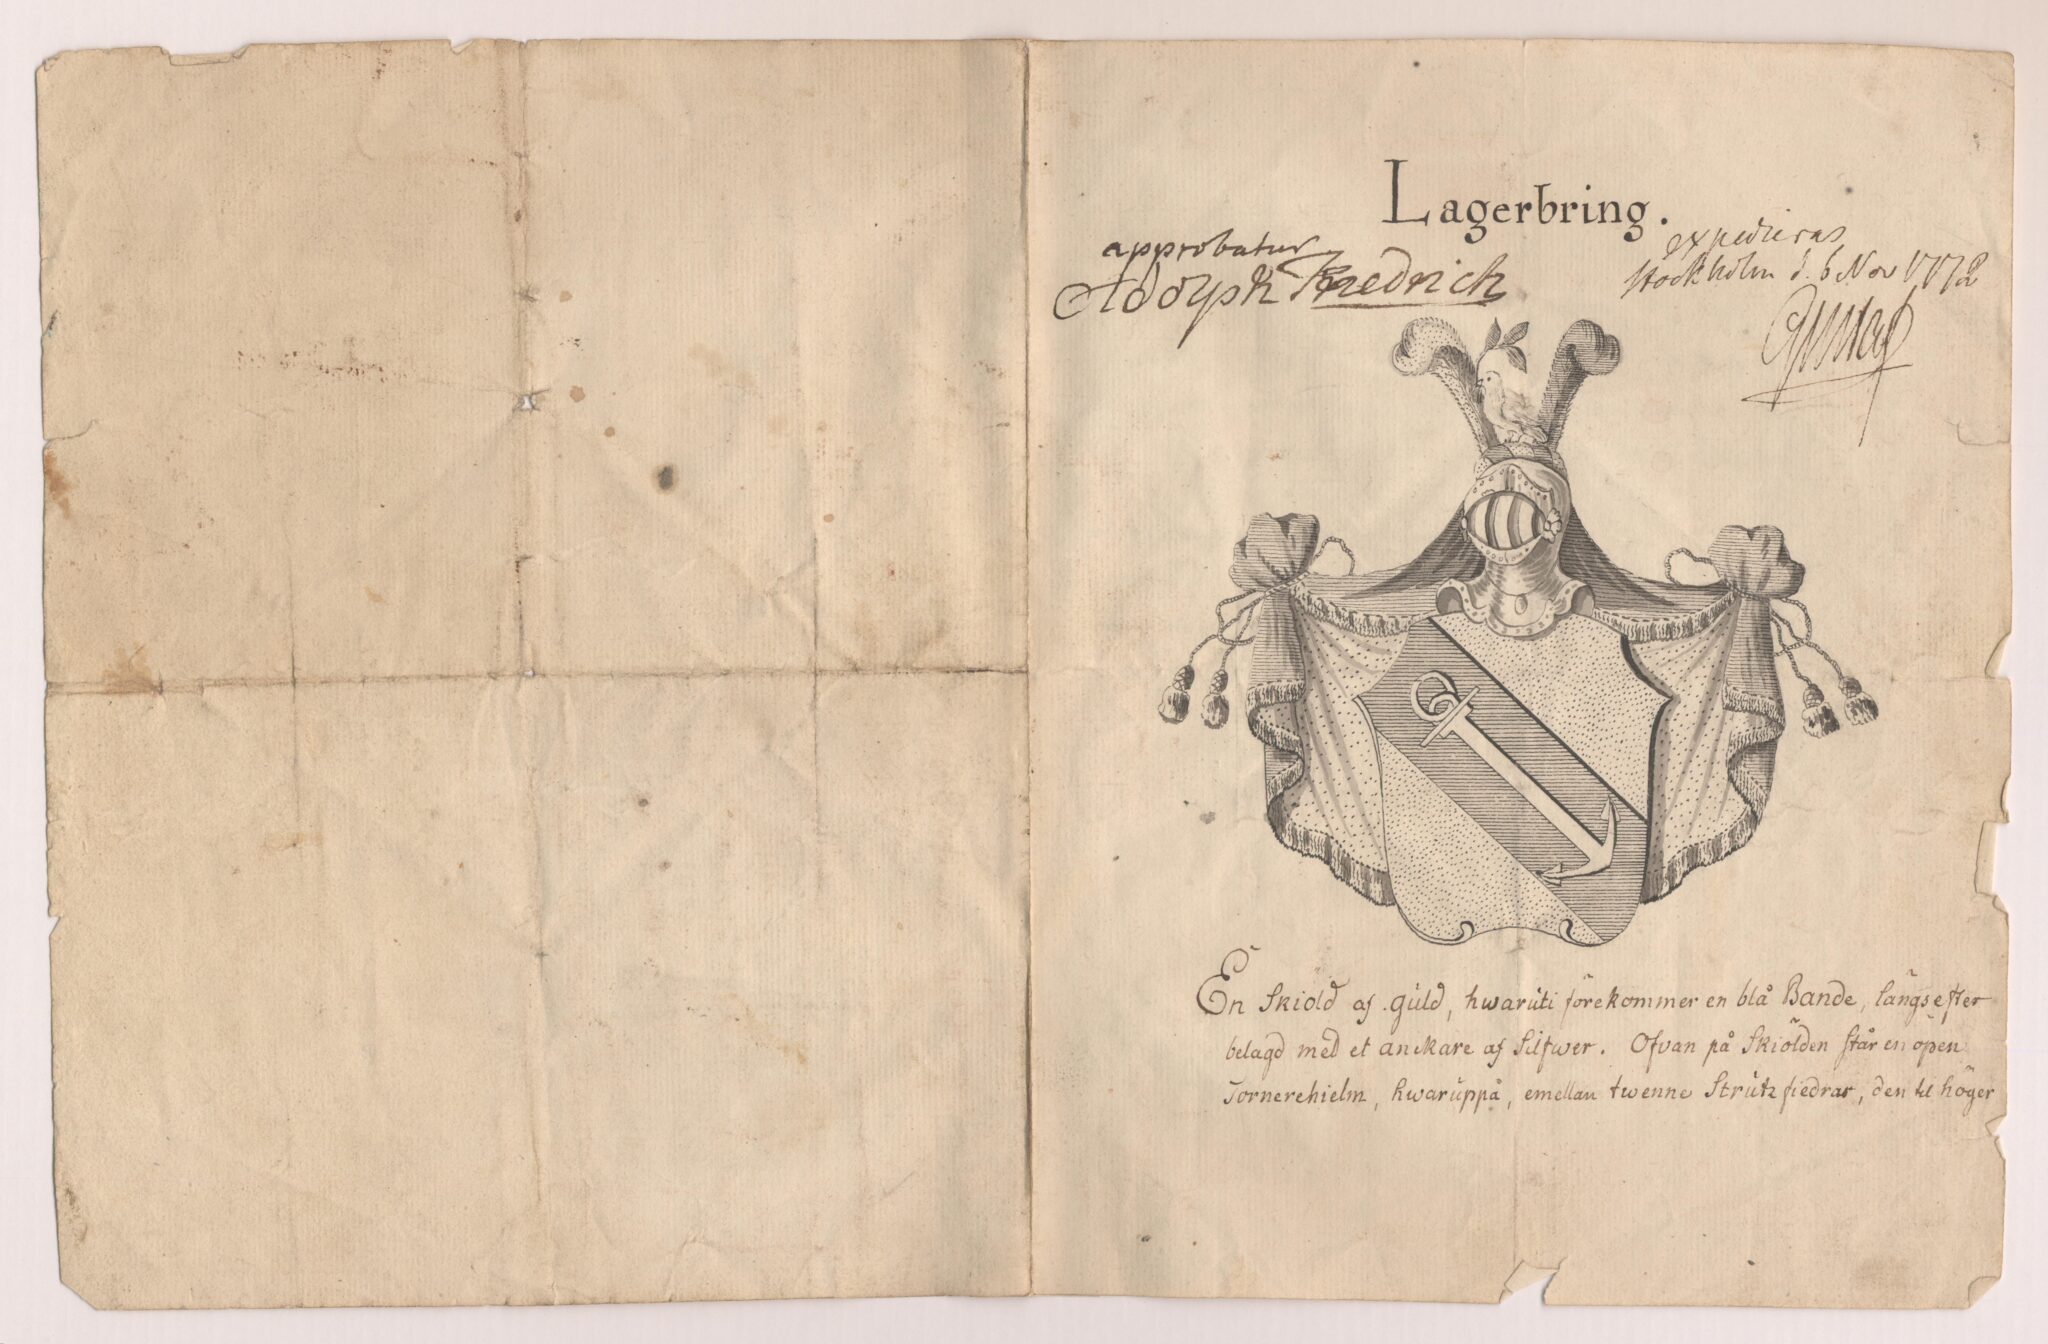 Lagerbring.
approbatur
Adolph Friedrich
expedieras
Stockholm d. 6 Nov 1772
Gustaf
En Skiöld af guld, hwaruti förekommer en blå Bande, långsefter
belagd med et anckare af Silfwer. Ofvan på Skiölden står en öpen
Tornerehielm, hwaruppå, emellan twenne Strutzfiedrar, den til höger